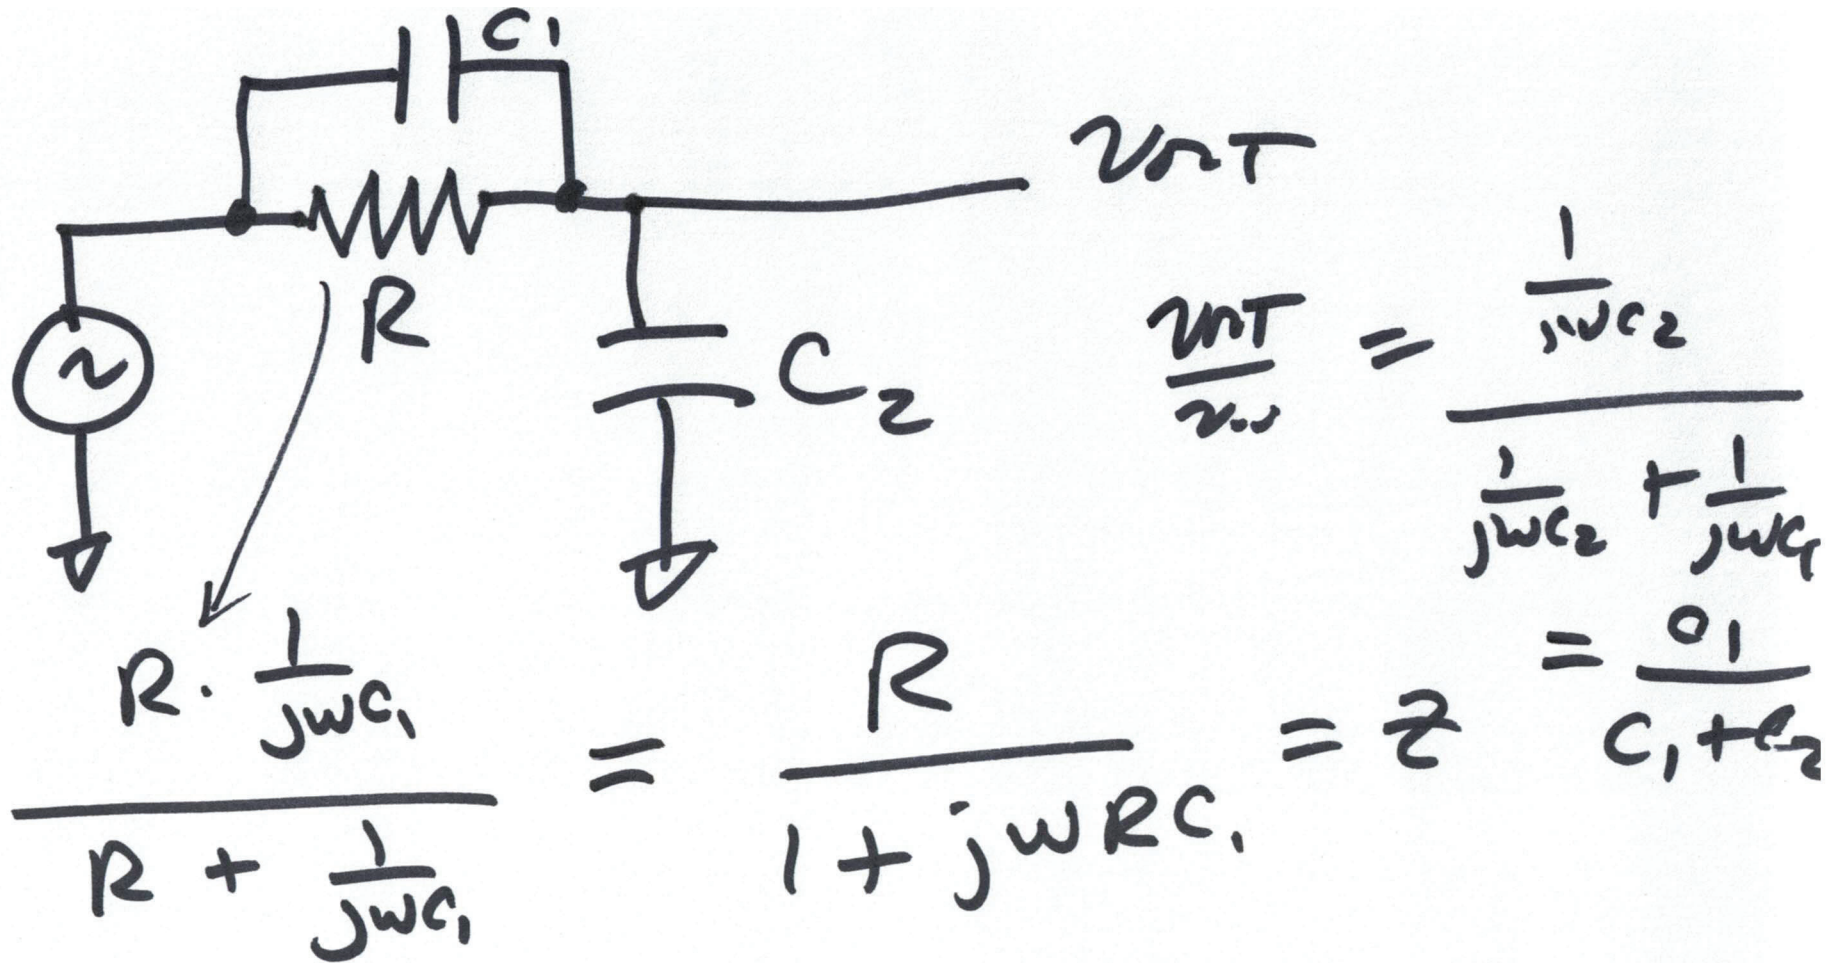 C1
vouT
R
C2
vouT/vin = (1/jwC2) / (1/jwC2 + 1/jwC1)
= C1 / (C1 + C2)
(R · 1/jwC1) / (R + 1/jwC1) = R / (1 + jwRC1) = Z